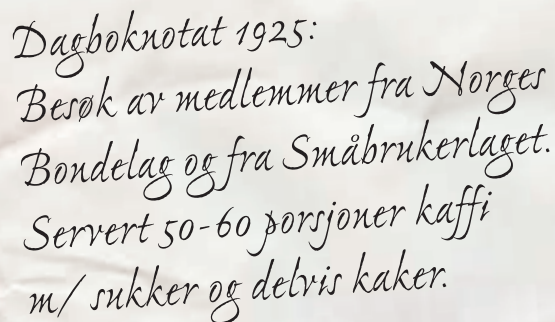 Dagboknotat 1925:
Besøk av medlemmer fra Norges
Bondelag og fra Småbrukerlaget.
Servert 50-60 porsjoner kaffi
m/ sukker og delvis kaker.